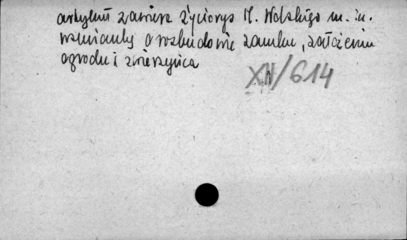 artykuł zawiera życiorys M. Wolskiego m. in.
wzmiankę o rozbudowie zamku, założeniu
ogrodu i zwierzyńca
XII/614